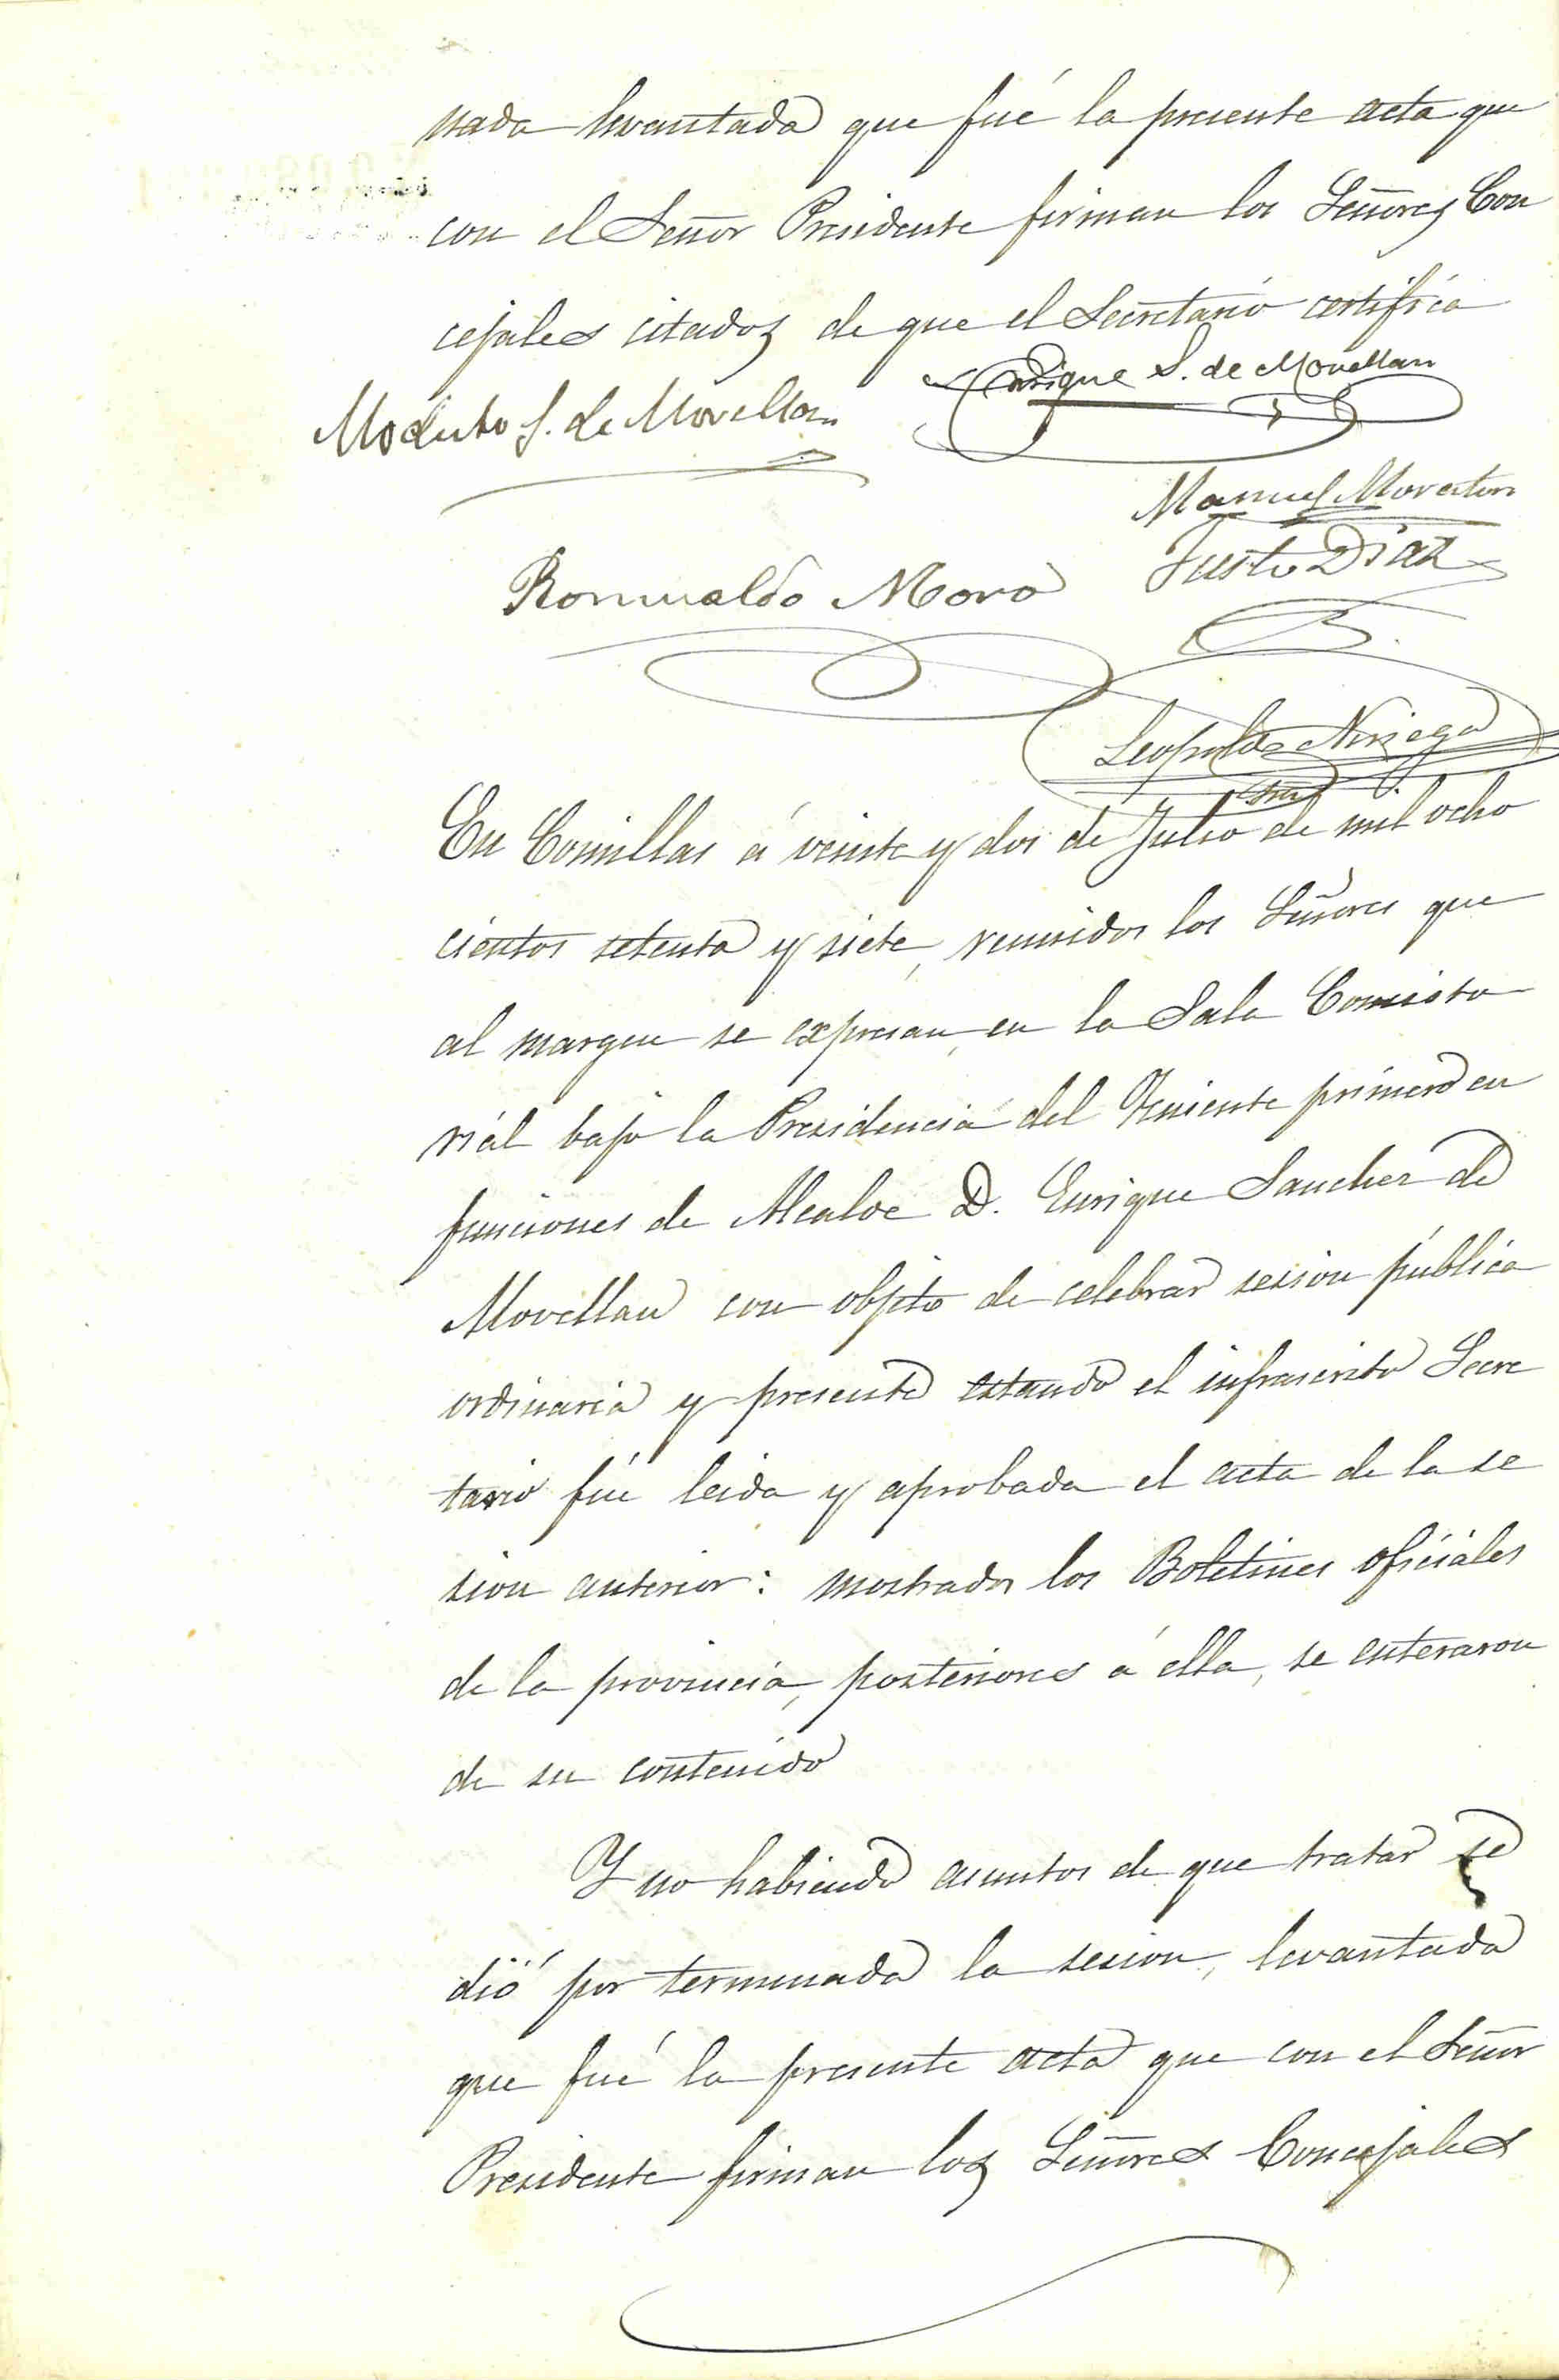 nada levantada que fué la presente acta que
con el Señor Presidente firman los Señores Con
cejales citados de que el Secretario certifica
Enrique S. de Movellan
Modesto S. de Movellan
Manuel Movellan
Romualdo Moro Justo Diaz
Leopoldo Noriega
Srio
En Comillas á veinte y dos de Julio de mil ocho
cientos setenta y siete, reunidos los Señores que
al margen se expresan, en la Sala Consisto
rial bajo la Presidencia del Teniente primero en
funciones de Alcalde D. Enrique Sanchez de
Movellan con objeto de celebrar sesion pública
ordinaria y presente estando el infrascrito Secre
tario fué leida y aprobada el acta de la se
sion anterior: mostrados los Boletines oficiales
de la provincia, posteriores á ella, se enteraron
de su contenido
Y no habiendo asuntos de que tratar se
dió por terminada la sesion, levantada
que fué la presente acta que con el Señor
Presidente firman los Señores Concejales